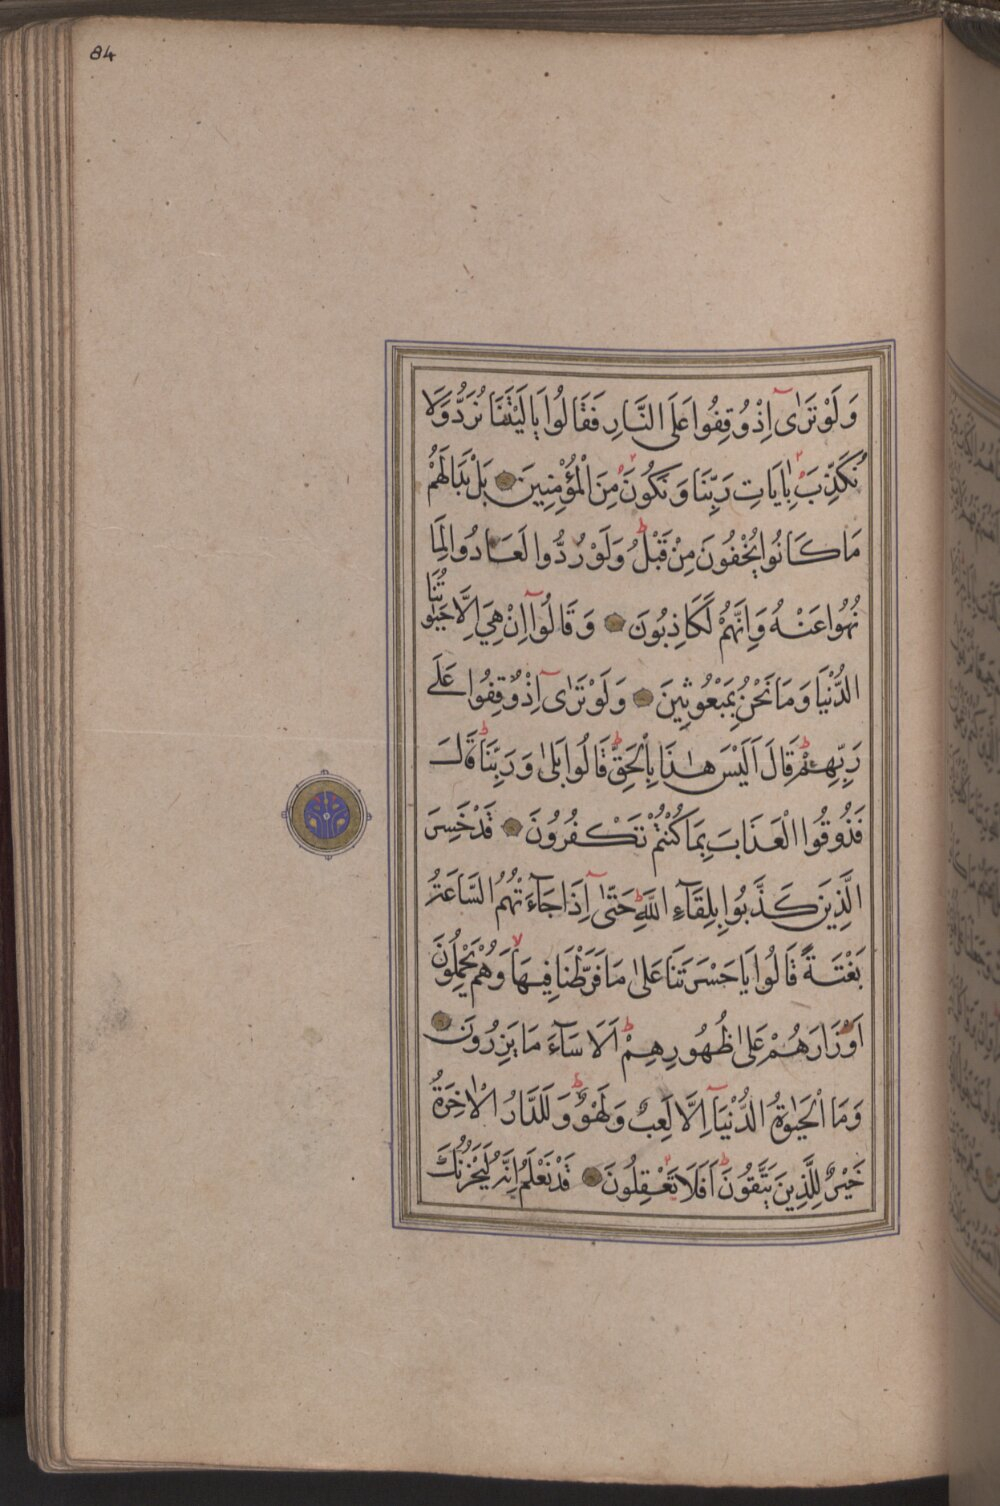 84
وَلَوْ تَرٰٓى اِذْ وُقِفُوا عَلَى النَّارِ فَقَالُوا يَا لَيْتَنَا نُرَدُّ وَلَا
نُكَذِّبَ بِاٰيَاتِ رَبِّنَا وَنَكُونَ مِنَ الْمُؤْمِنِينَ ۝ بَلْ بَدَا لَهُمْ
مَا كَانُوا يُخْفُونَ مِنْ قَبْلُ ط وَلَوْ رُدُّوا لَعَادُوا لِمَا
نُهُوا عَنْهُ وَاِنَّهُمْ لَكَاذِبُونَ ۝ وَقَالُوٓا اِنْ هِيَ اِلَّا حَيٰوتُنَا
الدُّنْيَا وَمَا نَحْنُ بِمَبْعُوثِينَ ۝ وَلَوْ تَرٰٓى اِذْ وُقِفُوا عَلٰى
رَبِّهِمْ ط قَالَ اَلَيْسَ هٰذَا بِالْحَقِّ ط قَالُوا بَلٰى وَرَبِّنَا ط قَالَ
فَذُوقُوا الْعَذَابَ بِمَا كُنْتُمْ تَكْفُرُونَ ۝ قَدْ خَسِرَ
الَّذِينَ كَذَّبُوا بِلِقَآءِ اللّٰهِ ط حَتّٰٓى اِذَا جَآءَتْهُمُ السَّاعَةُ
بَغْتَةً قَالُوا يَا حَسْرَتَنَا عَلٰى مَا فَرَّطْنَا فِيهَا لا وَهُمْ يَحْمِلُونَ
اَوْزَارَهُمْ عَلٰى ظُهُورِهِمْ ط اَلَا سَآءَ مَا يَزِرُونَ ۝
وَمَا الْحَيٰوةُ الدُّنْيَآ اِلَّا لَعِبٌ وَلَهْوٌ ط وَلَلدَّارُ الْاٰخِرَةُ
خَيْرٌ لِلَّذِينَ يَتَّقُونَ ط اَفَلَا تَعْقِلُونَ ۝ قَدْ نَعْلَمُ اِنَّهُ لَيَحْزُنُكَ